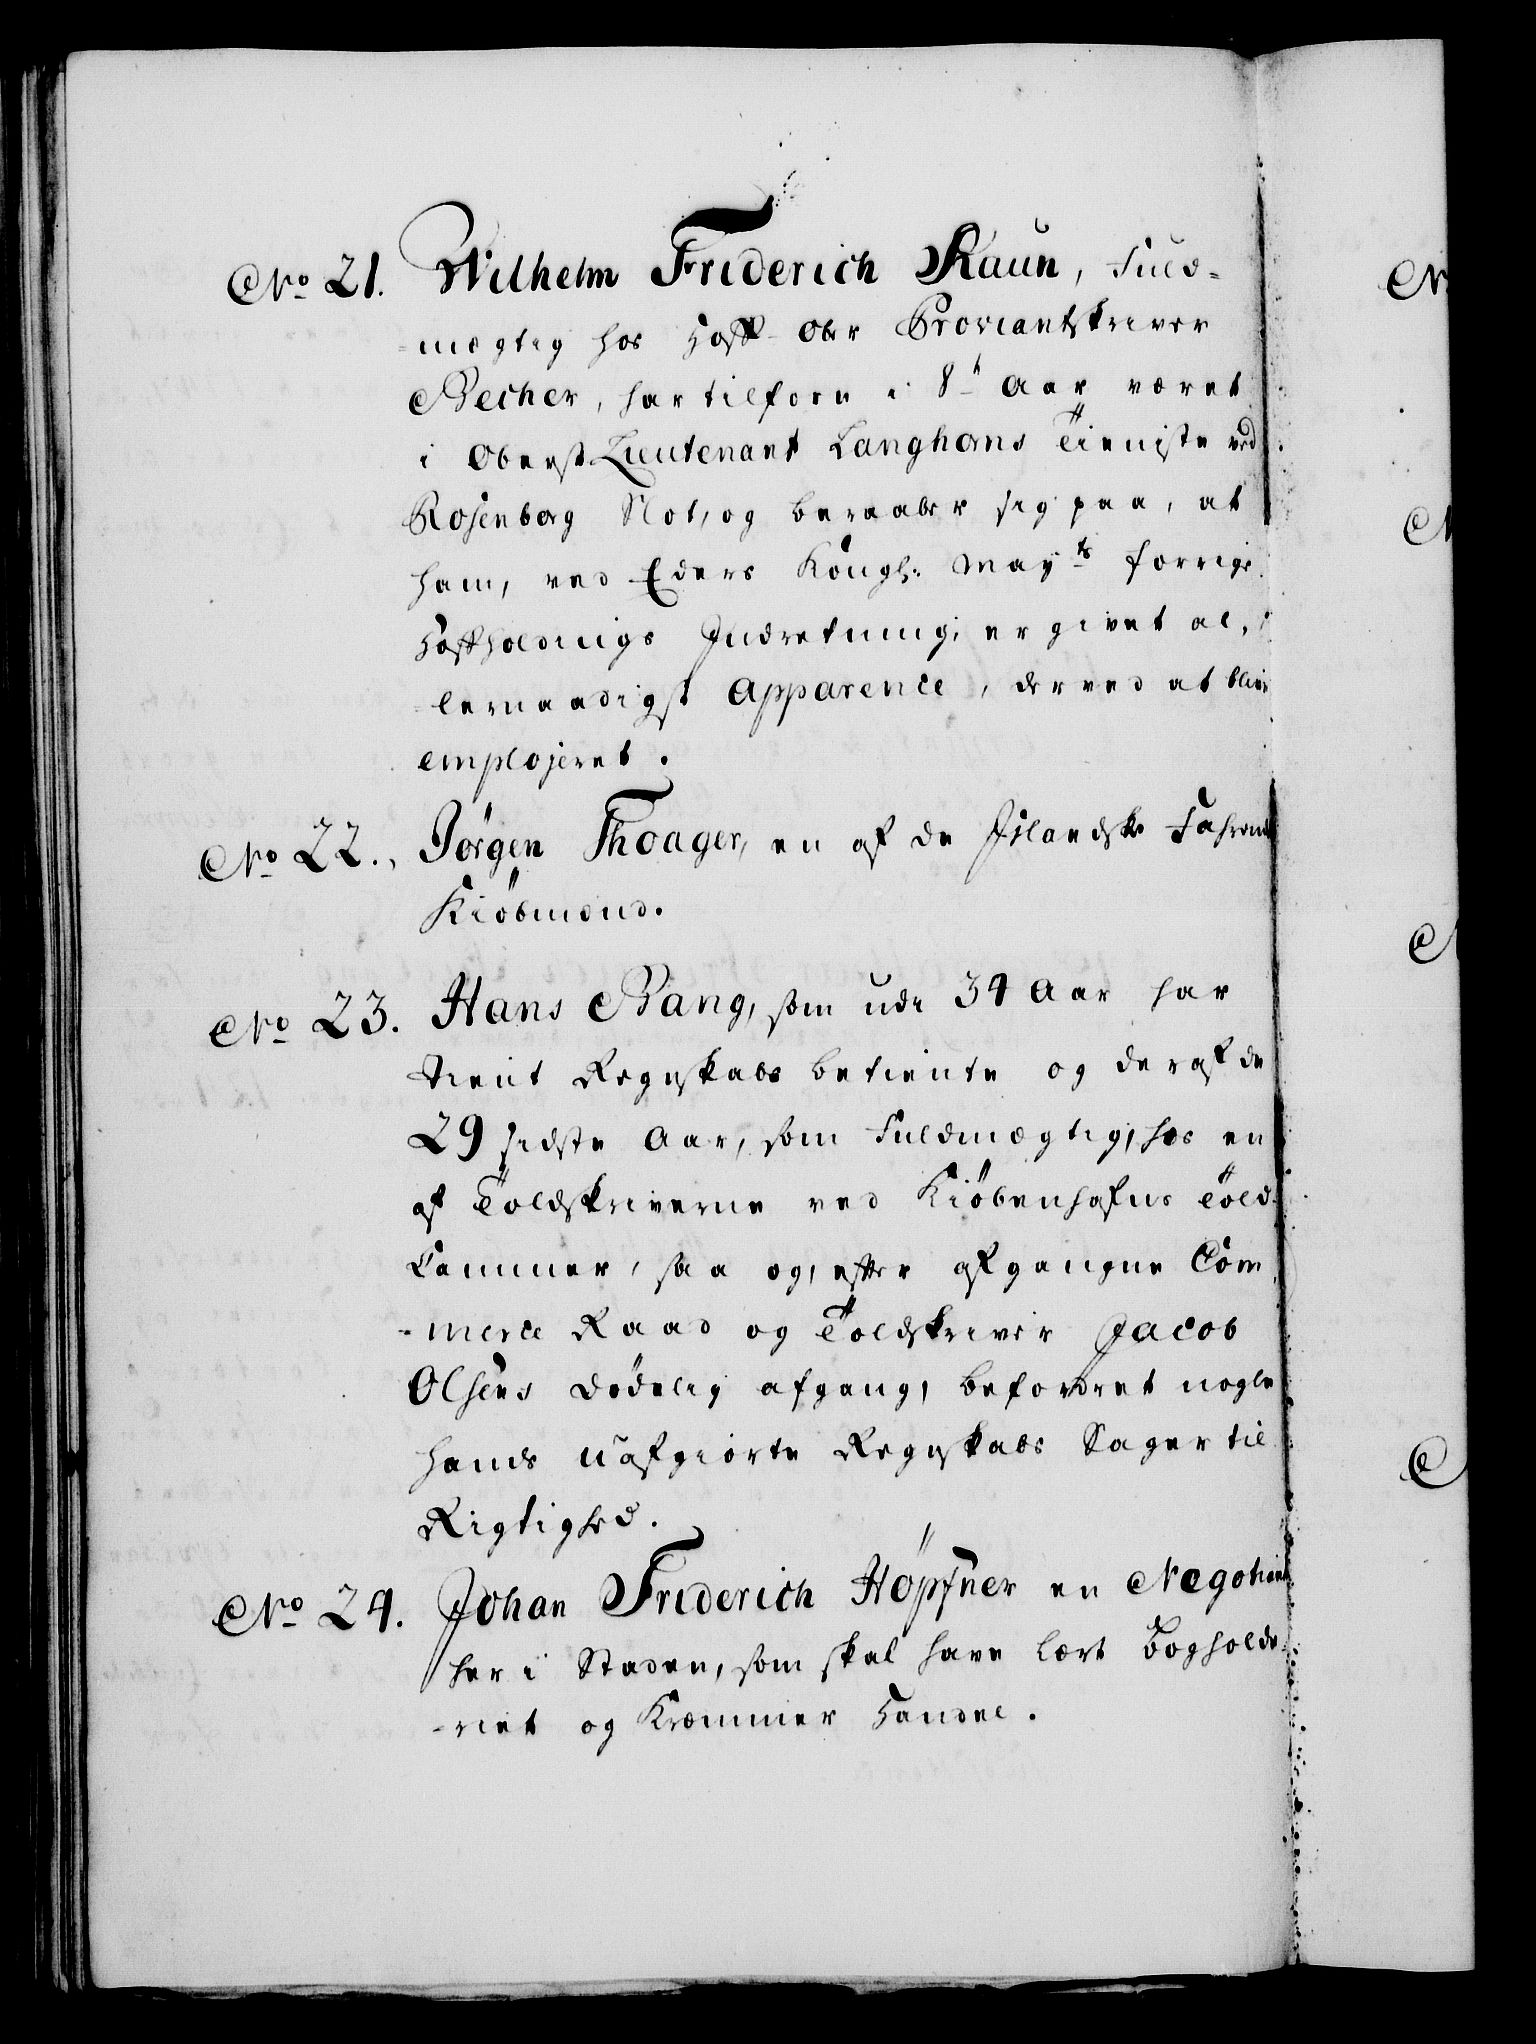 No 21. Wilhelm Friderich Raun, Fuld-
-mægtig hos Hoff- Ober Proviantskriver
Becher, har tilforn i 8te Aar været
i Oberst Lieutenant Langhorns Tieniste ved
Rosenborg Slot, og beraaber sig paa, at
ham, ved Eders Kongl: Mayts forrige
Hoffholdnigs Indretning, er givet al,
-lernaadigst Apparence, derved at blive
emplojeret.
No 22., Jørgen Thoager, en af de Jslandske Fahrende
Kiöbmænd.
No 23. Hans Bang, som udi 34 Aar har
tient Regnskabs betiente og deraf de
29 sidste Aar, som Fuldmægtig, hos en
af Toldskriverne ved Kiöbenhafns Told-
Cammer, saa og, efter afgangne Com
-merce Raad og Toldskriver Jacob
Olsens dödelig afgang, befordret nogle
hands uafgiorte Regnskabs Sager til
Rigtighed.
No 24. Johan Friderich Höpfner en Negotiant
her i Staden, som skal have lært Bogholde-
-riet og Kræmmer Handel.